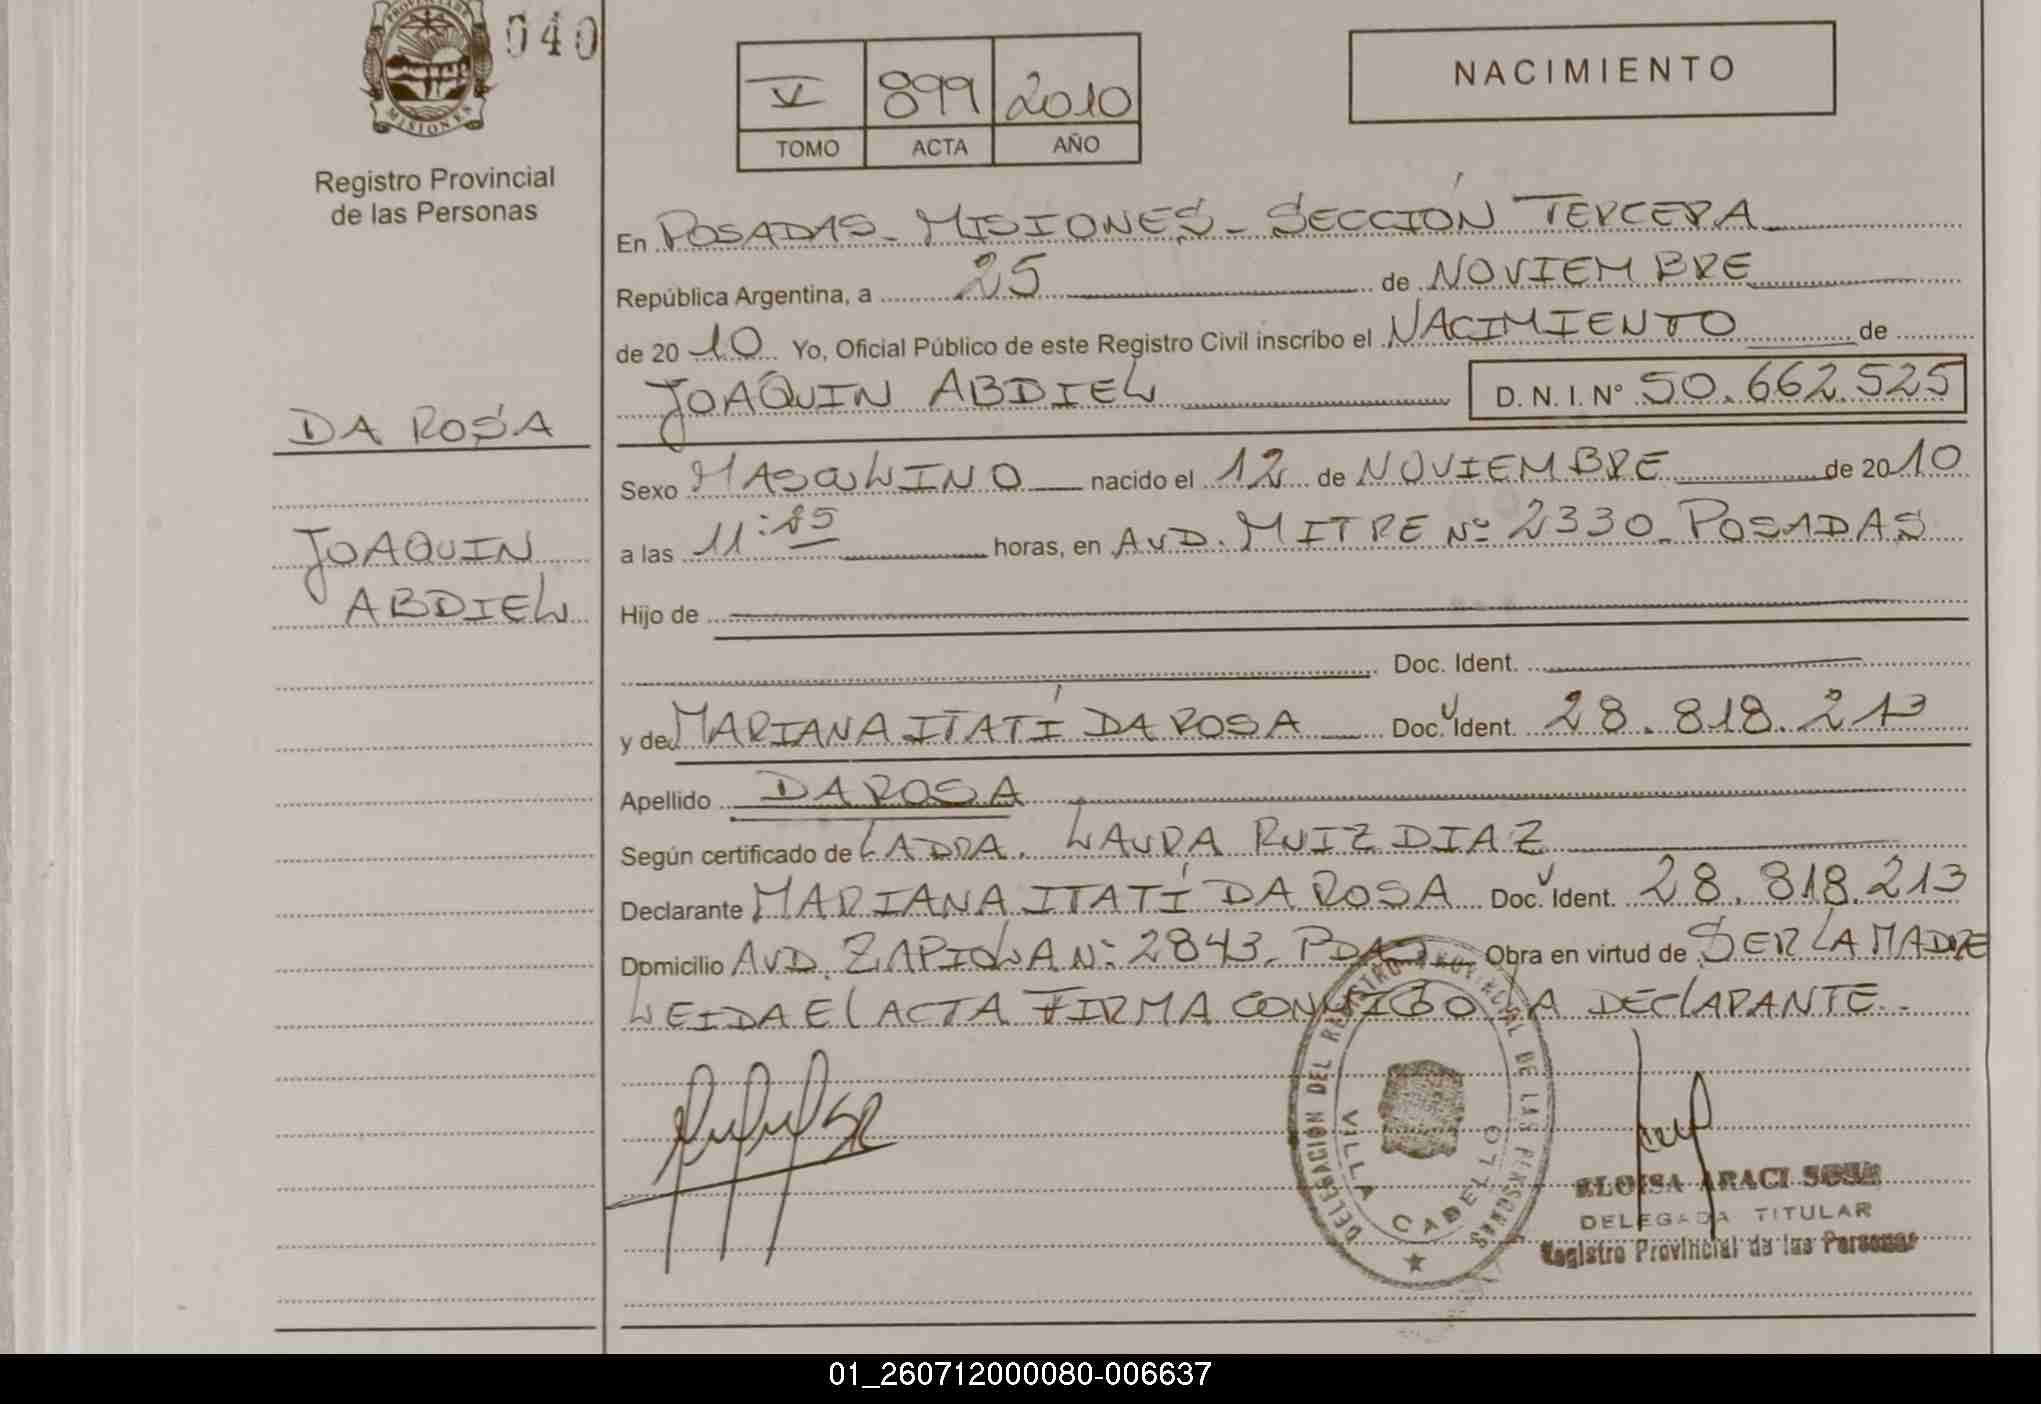 040
MISIONES
Registro Provincial
de las Personas
V 899 2010
TOMO ACTA AÑO
NACIMIENTO
En POSADAS - MISIONES - SECCIÓN TERCERA
República Argentina, a 25 de NOVIEMBRE
de 20 10 Yo, Oficial Público de este Registro Civil inscribo el NACIMIENTO de
JOAQUIN ABDIEL D. N. I. Nº 50.662.525
DA ROSA
JOAQUIN
ABDIEL
Sexo MASCULINO nacido el 12 de NOVIEMBRE de 20 10
a las 11: horas, en AVD. MITRE Nº 2330 - POSADAS
Hijo de
Doc. Ident.
y de MARIANA ITATÍ DA ROSA Doc. Ident. 28.818.213
Apellido DA ROSA
Según certificado de LA DRA. LAURA RUIZ DIAZ
Declarante MARIANA ITATÍ DA ROSA Doc. Ident. 28.818.213
Domicilio AVD. ZAPIOLA Nº 2843. PDAS Obra en virtud de SER LA MADRE
LEIDA EL ACTA FIRMA CONMIGO LA DECLARANTE.-
DELEGACION DEL REGISTRO PROVINCIAL DE LAS PERSONAS
VILLA CABELLO
ELOISA ARACI SOSA
DELEGADA TITULAR
Registro Provincial de las Personas
01_260712000080-006637